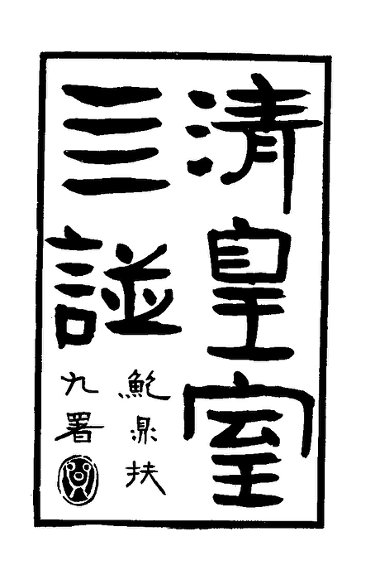 清皇室
亖諩
鮑鼎扶
九署